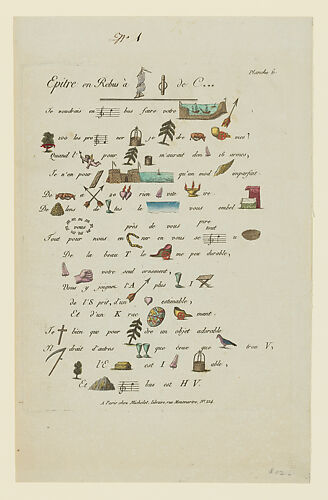 N.º 1
Planche 6.
Epitre en Rebus à de C...
Je voudrais en bus faire votre ,
100 les pro ner je dre vous !
Quand l' pour m'aurait d'un 16 armes,
Je n'en pour qu'en mod imparfait.
De vo rien vate uve
De lons de tus le vous embel
vous près de vous pire tout
Tout pour nous en ner en vous se u
De la beau T le me peu durable,
votre seul ornement ;
Vous y joignez l'A plus I
de l'S prit, d'un estimable ;
Et d'un K rac ment .
Je bien que pour dre un objet adorable
Il drait d'autres que ceux que trou V,
l'E est I able ;
Et bus est H V.
A Paris chez Michelet, Libraire, rue Montmartre, N.º 124.